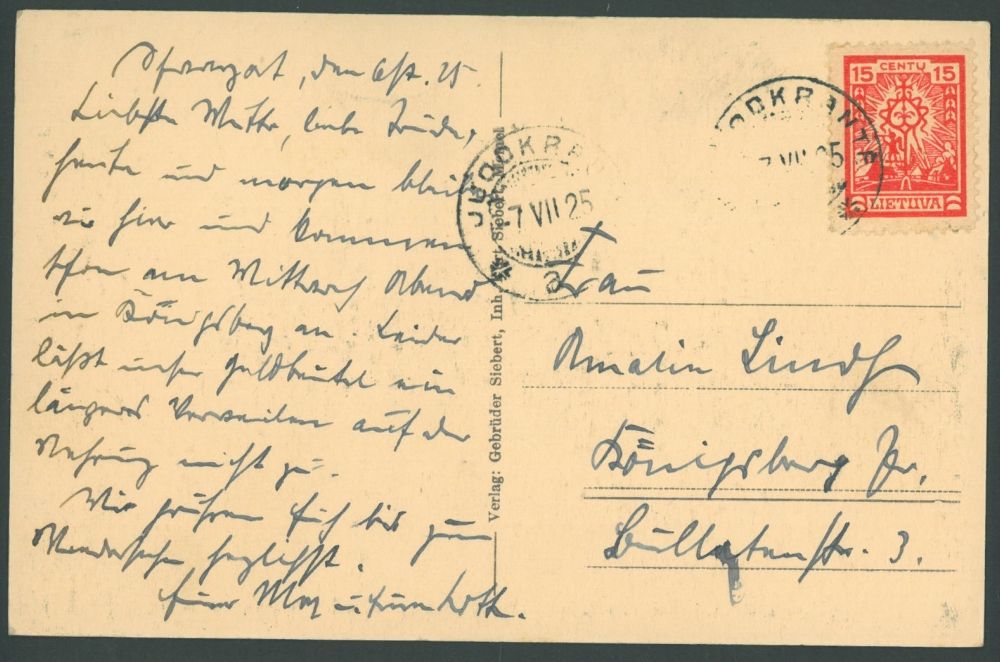 den 6/7. 25.
Liebste Mutter, liebe Trude,
heute und morgen bleiben
wir hier und kommen
schon am Mittwoch Abend
in Königsberg an. Leider
läßt unser Geldbeutel ein
längeres Verweilen auf der
Nehrung nicht zu.
Wir grüßen Euch bis zum
Wiedersehen herzlichst.
Verlag: Gebrüder Siebert, Inh. Siebert, Memel
JUODKRA
-7 VII 25
a
ODKRANTE
7 VII 25
15 CENTŲ 15
LIETUVA
Frau
Amalie
Königsberg Pr.
3.